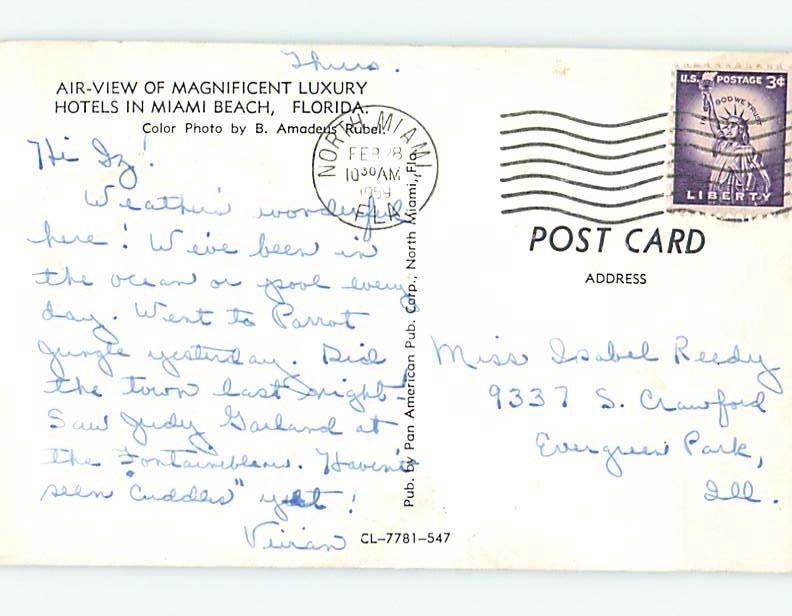 Thurs.
AIR-VIEW OF MAGNIFICENT LUXURY
HOTELS IN MIAMI BEACH, FLORIDA.
Color Photo by B. Amadeus Rubel.
Hi Iz!
Weather's wonderful
here! We've been in
the ocean or pool every
day. Went to Parrot
Jungle yesterday. Did
the town last night-
Saw Judy Garland at
the Fontainebleau. Haven't
seen "Cuddles" yet!
Vivian
CL-7781-547
Pub. by Pan American Pub. Corp., North Miami, Fla.
NORTH MIAMI,
FEB 28
10 30 AM
1959
FLA.
U.S. POSTAGE 3¢
IN GOD WE TRUST
LIBERTY
POST CARD
ADDRESS
Miss Isabel Reedy
9337 S. Crawford
Evergreen Park,
Ill.